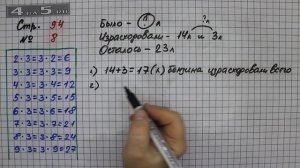 4 на 5
Стр. 94
№ 8
2 · 3 = 3 · 2 = 6
3 · 3 = 3 · 3 = 9
4 · 3 = 3 · 4 = 12
5 · 3 = 3 · 5 = 15
6 · 3 = 3 · 6 = 18
7 · 3 = 3 · 7 = 21
8 · 3 = 3 · 8 = 24
9 · 3 = 3 · 9 = 27
Было – л
?л
Израсходовали – 14л и 3л
Осталось – 23л
1) 14+3=17(л) бензина израсходовали всего
2)